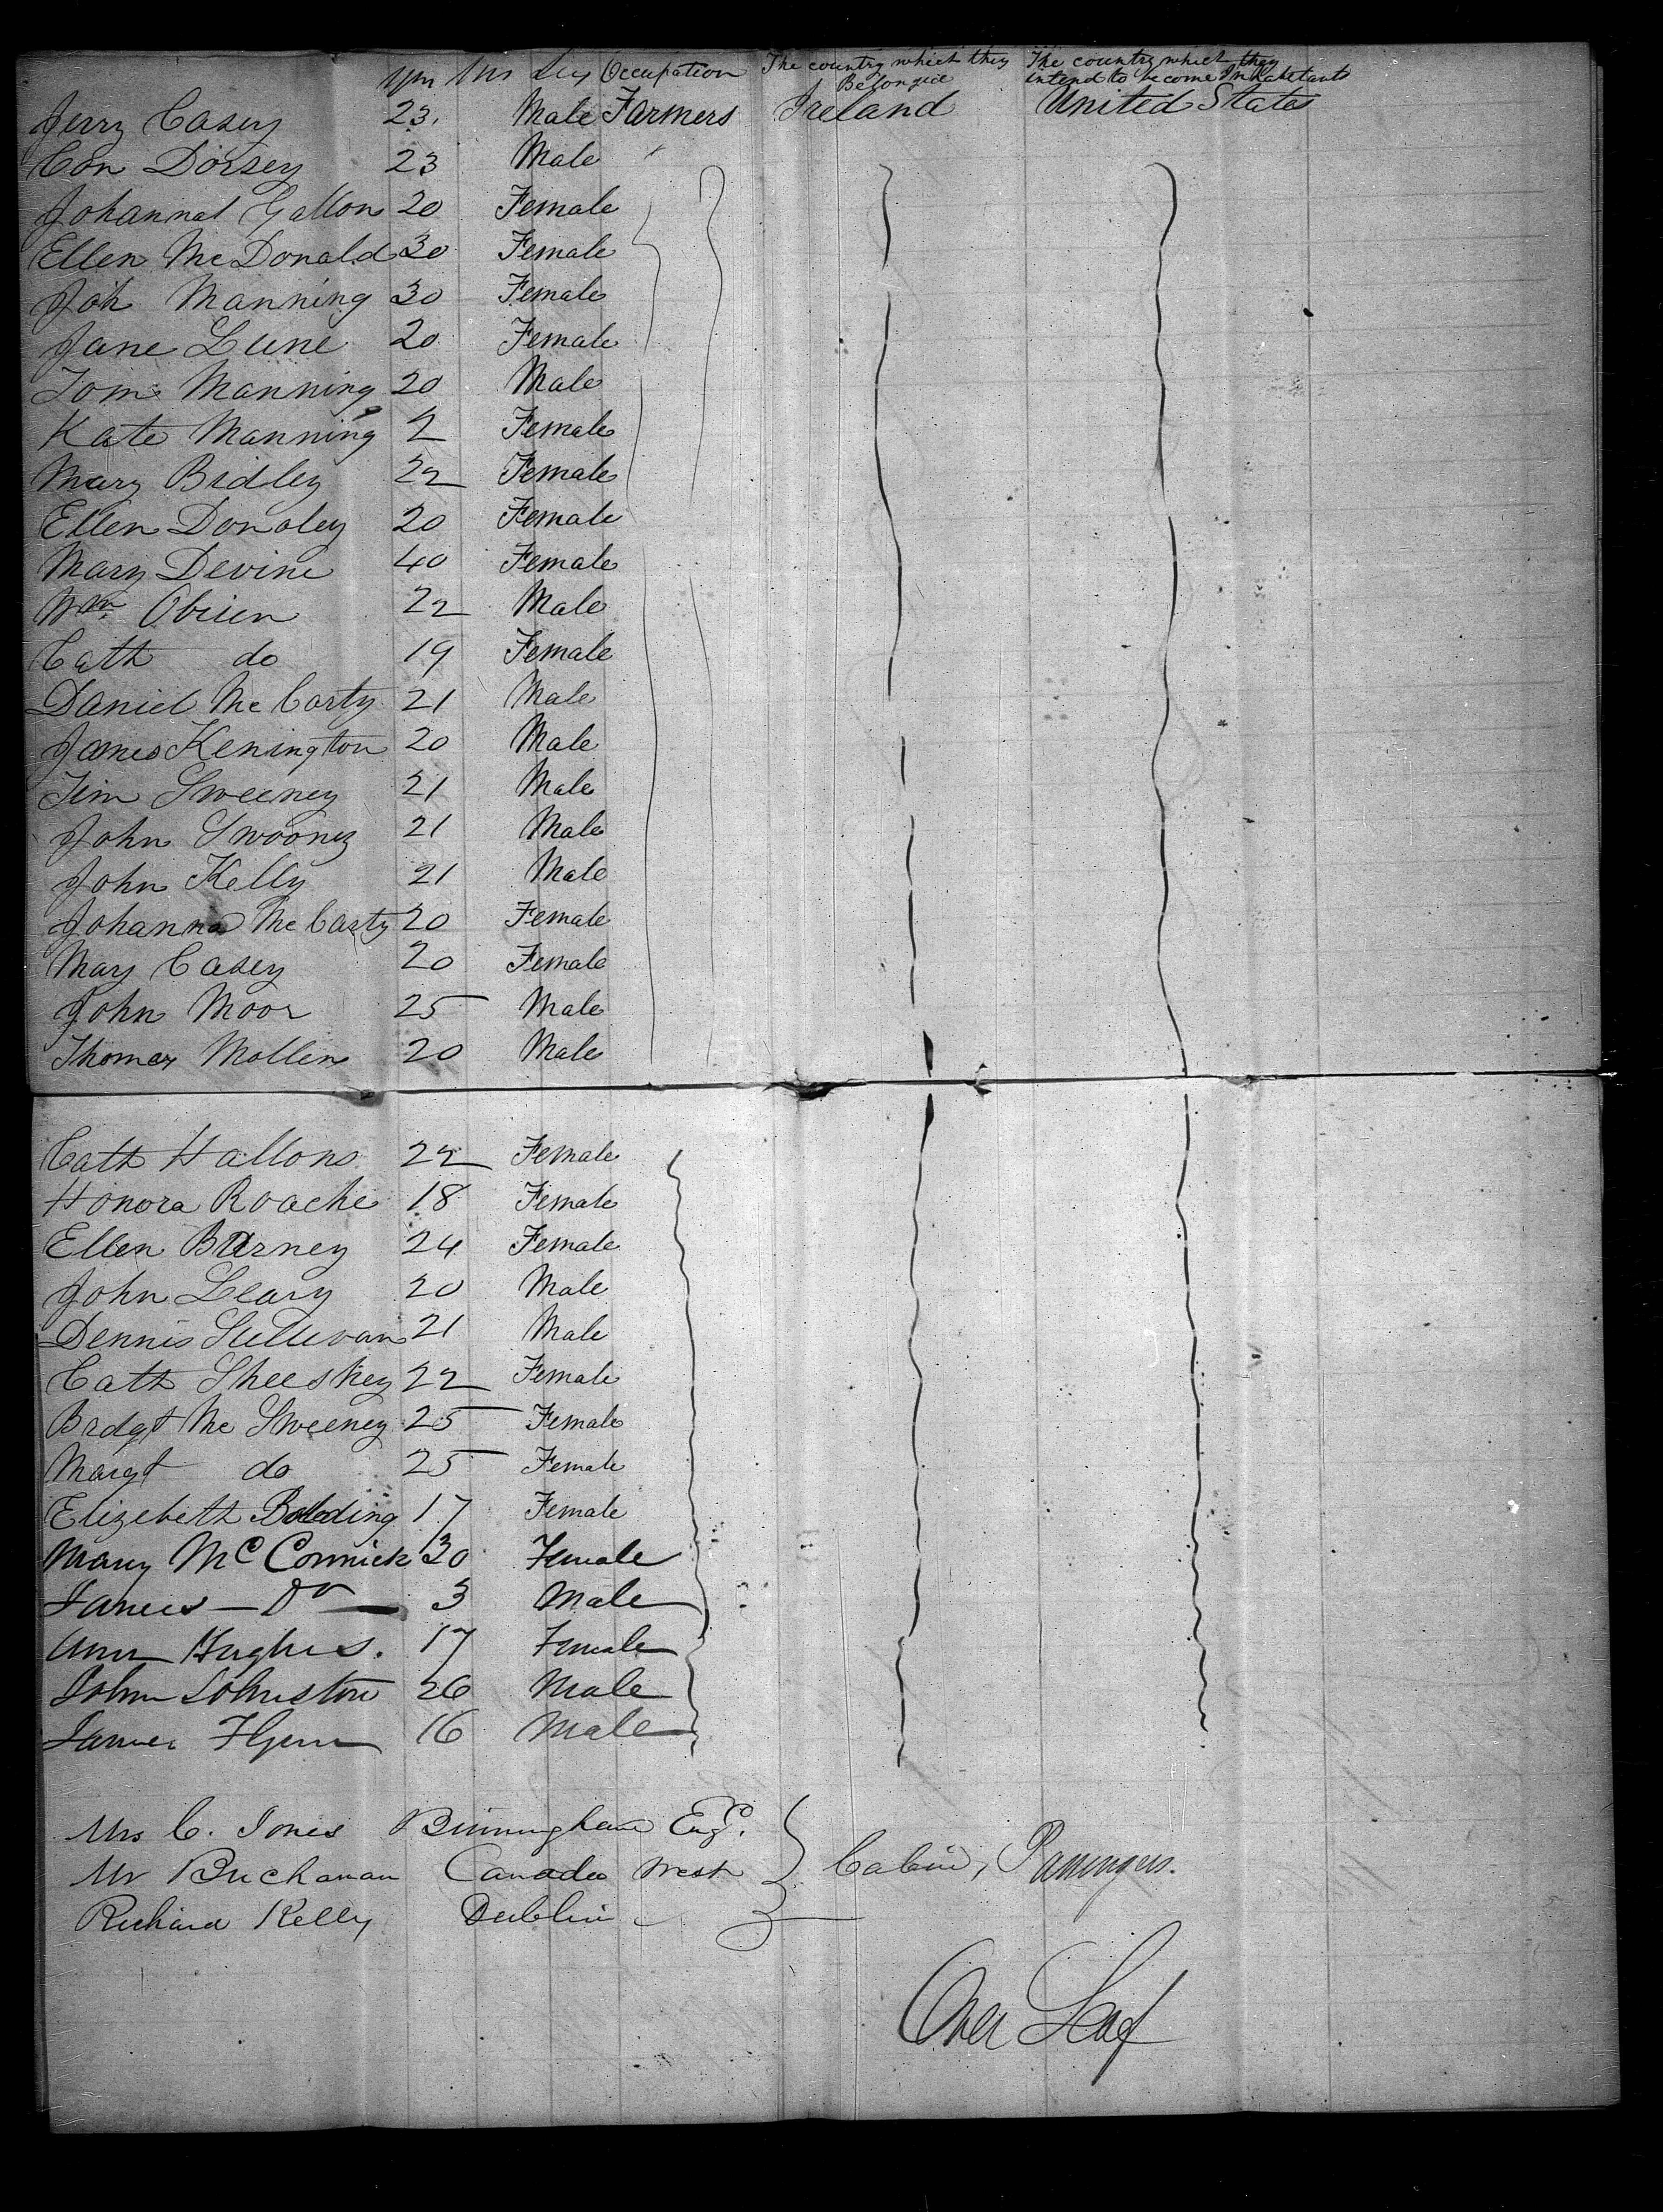 Yrs Ms Sex Occupation The country which they Belong The country which they intend to become Inhabitants
Jerry Casey 23 Male Farmers Ireland United States
Con Dorsey 23 Male
Johannah Gallon 20 Female
Ellen McDonald 30 Female
Joh Manning 30 Female
Jane Lune 20 Female
Tom Manning 20 Male
Kate Manning 2 Female
Mary Bidley 22 Female
Ellen Donoley 20 Female
Mary Devine 40 Female
Wm Obrien 22 Male
Cath do 19 Female
Daniel McCarty 21 Male
James Kenington 20 Male
Jim Sweeney 21 Male
John Swooney 21 Male
John Kelly 21 Male
Johanna McCarty 20 Female
Mary Casey 20 Female
John Moor 25 Male
Thomas Mollen 20 Male
Cath Hallons 22 Female
Honora Roache 18 Female
Ellen Barney 24 Female
John Leary 20 Male
Dennis Sullivan 21 Male
Cath Sheeskey 22 Female
Bridgt McSweeney 25 Female
Margt do 25 Female
Elizebeth 17 Female
Mary McCormick 30 Female
James — Do — 3 Male
Ann Hughes. 17 Female
John Johnston 26 Male
James Flynn 16 Male
Mrs C. Jones Birmingham Eng.
Mr Buchanan Canada West Cabin, Passengers.
Richard Kelly Dublin
Over Leaf